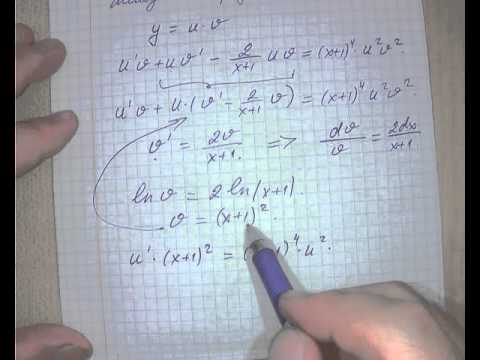 y = u·v
u'v + uv' - 2/(x+1) uv = (x+1)^4 · u^2 v^2.
u'v + u·(v' - 2/(x+1) v) = (x+1)^4 u^2 v^2.
v' = 2v/(x+1). => dv/v = 2dx/(x+1)
ln v = 2 ln(x+1).
v = (x+1)^2.
u' · (x+1)^2 = 1)^4 · u^2.